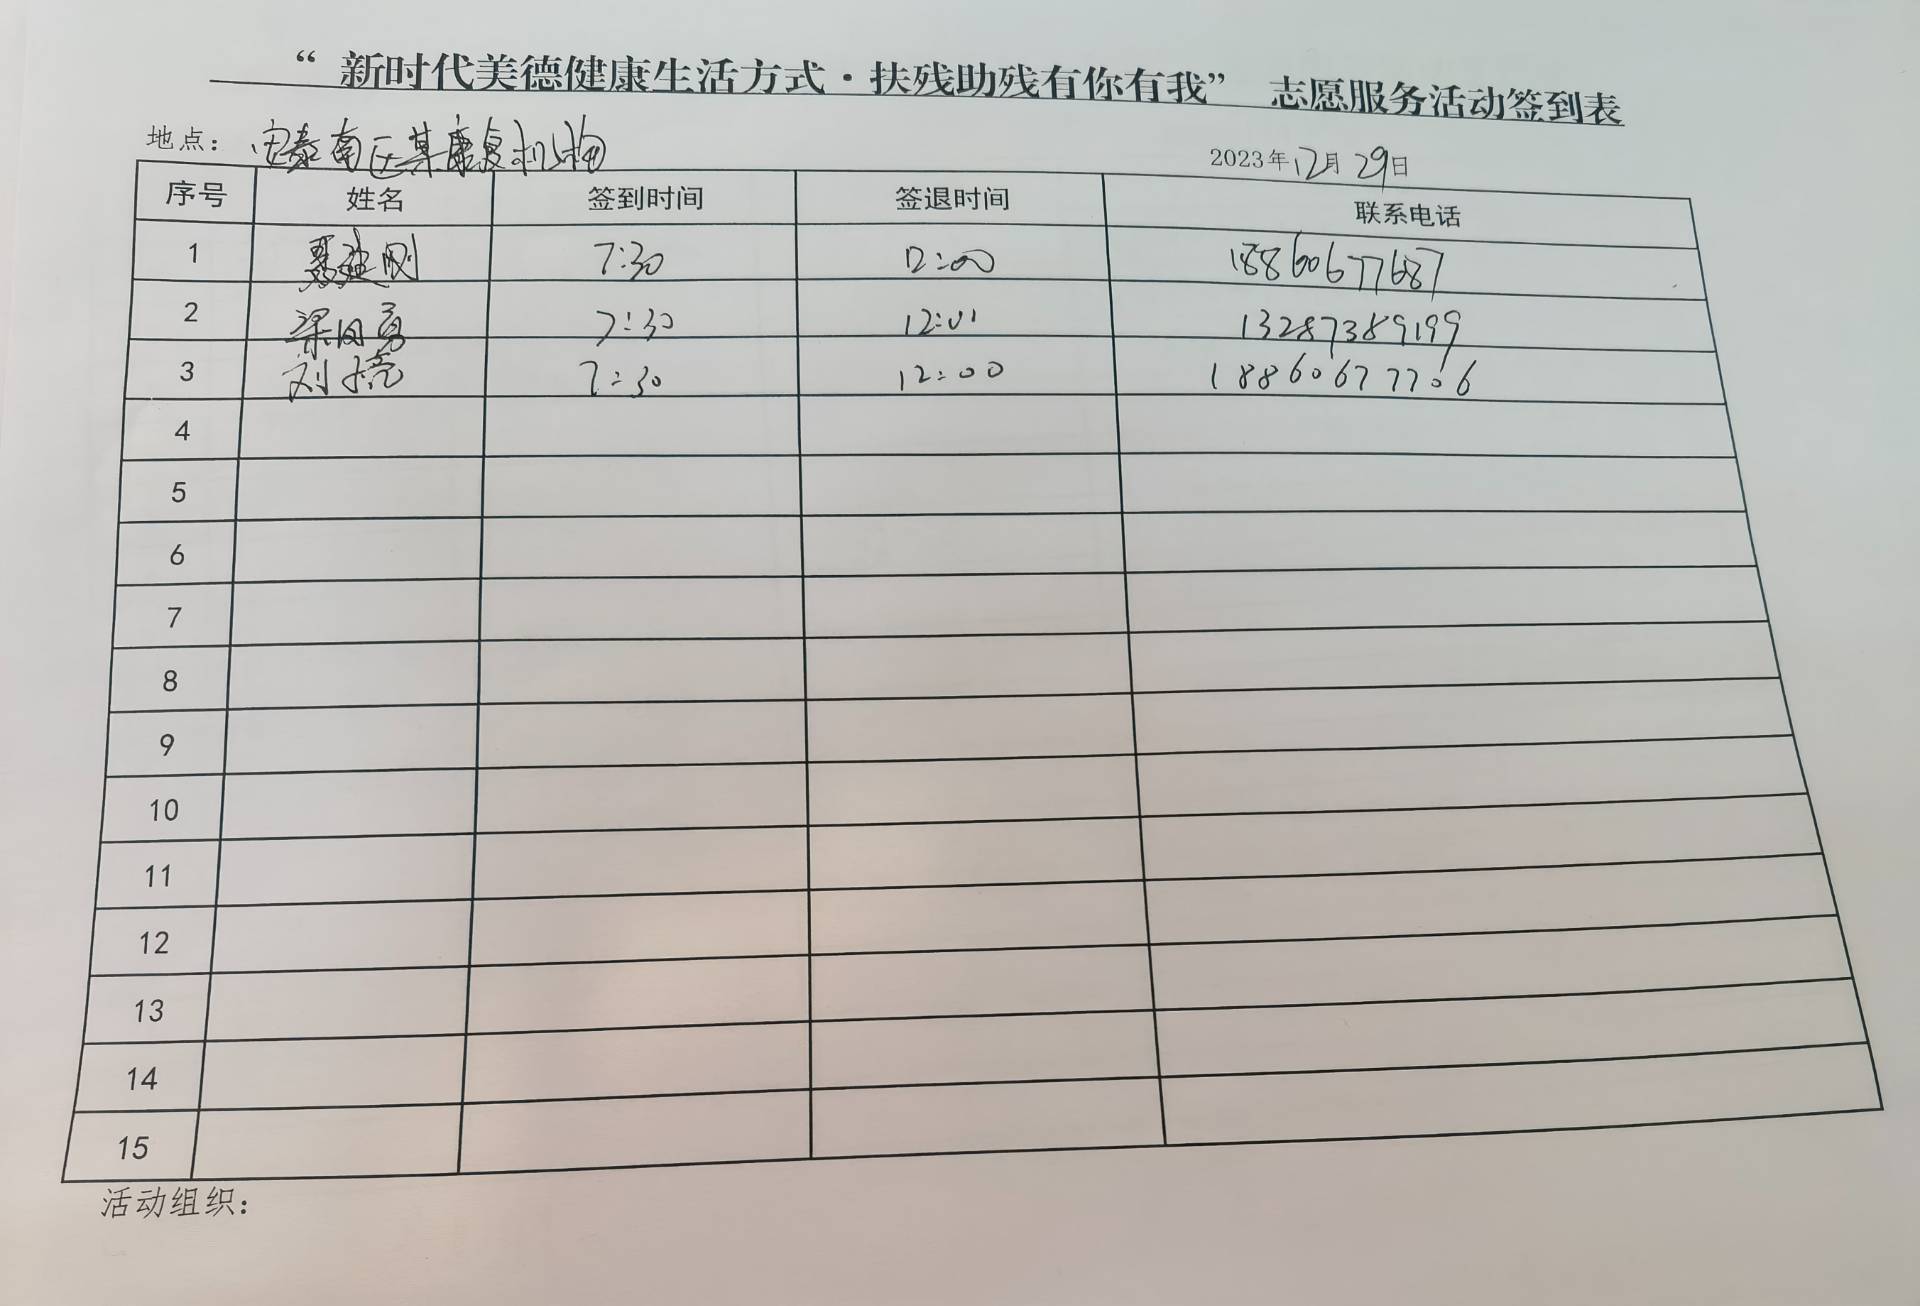 “新时代美德健康生活方式·扶残助残有你有我” 志愿服务活动签到表
地点：宏泰南区某康复机构
2023年12月29日
序号 姓名 签到时间 签退时间 联系电话
1 聂建刚 7:30 12:00 18860677687
2 梁日勇 7:30 12:01 13287389199
3 刘 7:30 12:00 18860677706
4
5
6
7
8
9
10
11
12
13
14
15
活动组织：